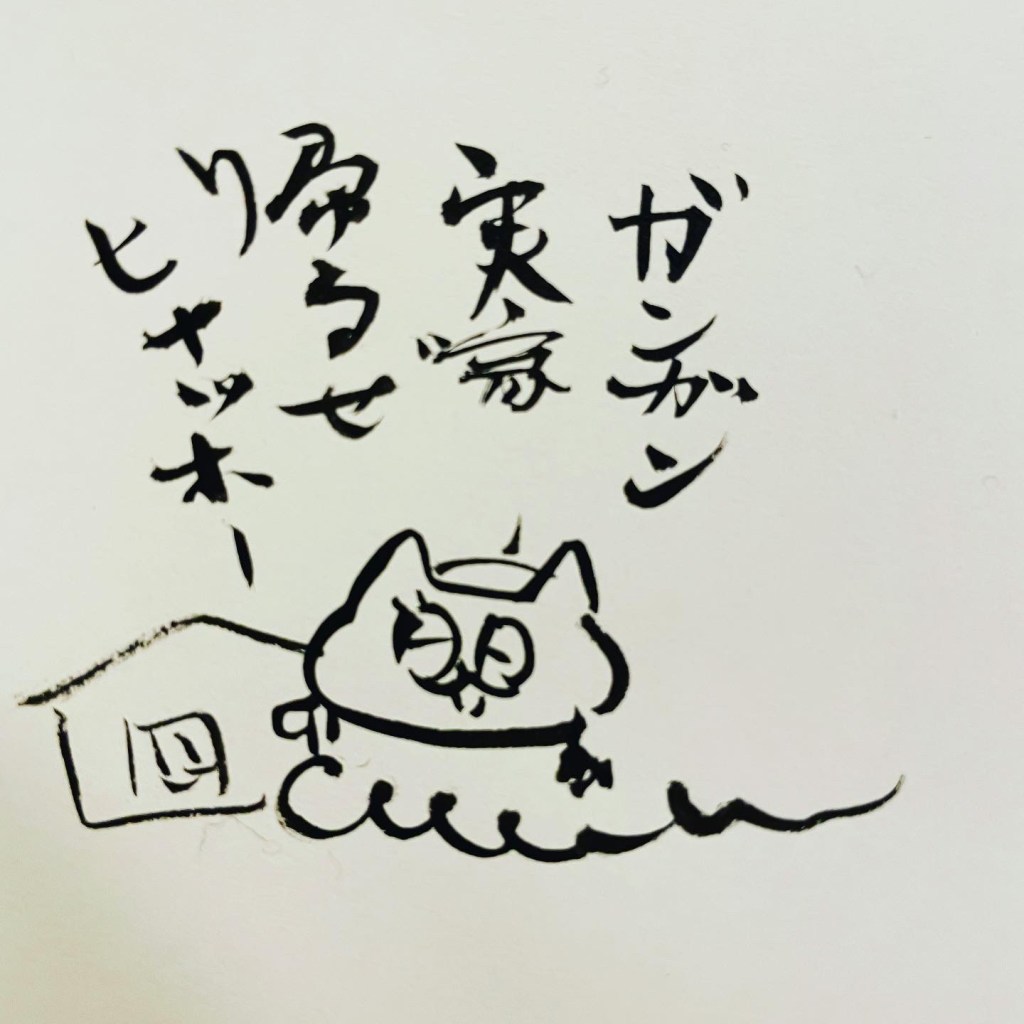 ガンガン
実家
帰るぜ
ヒャッホー